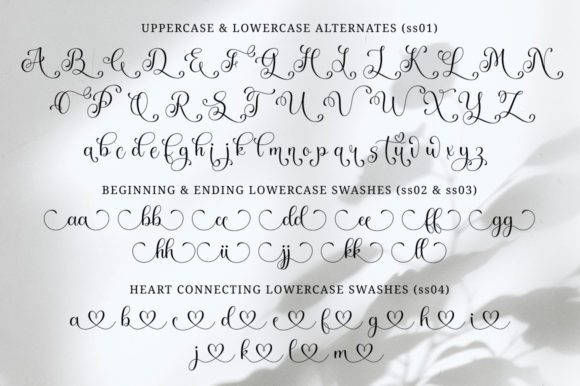 UPPERCASE & LOWERCASE ALTERNATES (ss01)
A B C D E F G H I J K L M N
O P Q R S T U V W X Y Z
a b c d e f g h i j k l m n o p q r s t u v w x y z
BEGINNING & ENDING LOWERCASE SWASHES (ss02 & ss03)
aa bb cc dd ee ff gg
hh ii jj kk ll
HEART CONNECTING LOWERCASE SWASHES (ss04)
a b c d e f g h i
j k l m